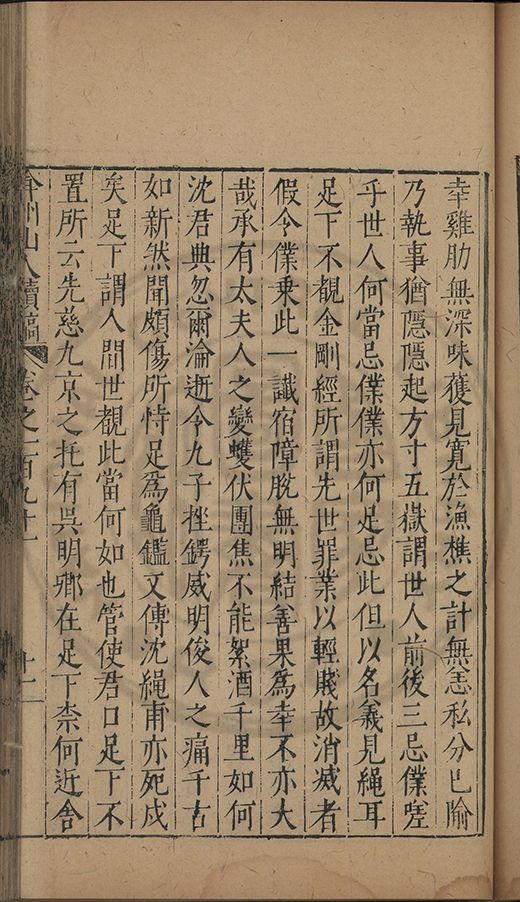 幸雞肋無深味獲見寬於漁樵之計無恙私分已踰
乃執事猶隱隱起方寸五嶽謂世人前後三忌僕嗟
乎世人何當忌僕僕亦何足忌此但以名義見繩耳
足下不覩金剛經所謂先世罪業以輕賤故消滅者
假令僕乗此一讖宿障脫無明結善果為幸不亦大
哉承有太夫人之變蠖伏團焦不能絮酒千里如何
沈君典忽爾淪逝今九子挫鍔威明俊人之痛千古
如新然聞頗傷所恃足為龜鑑文傳沈繩甫亦死戍
矣足下謂人間世覩此當何如也管使君口足下不
置所云先慈九京之托有吳明卿在足下柰何近舍
弇州山人續稿 卷之一百九十一 十二